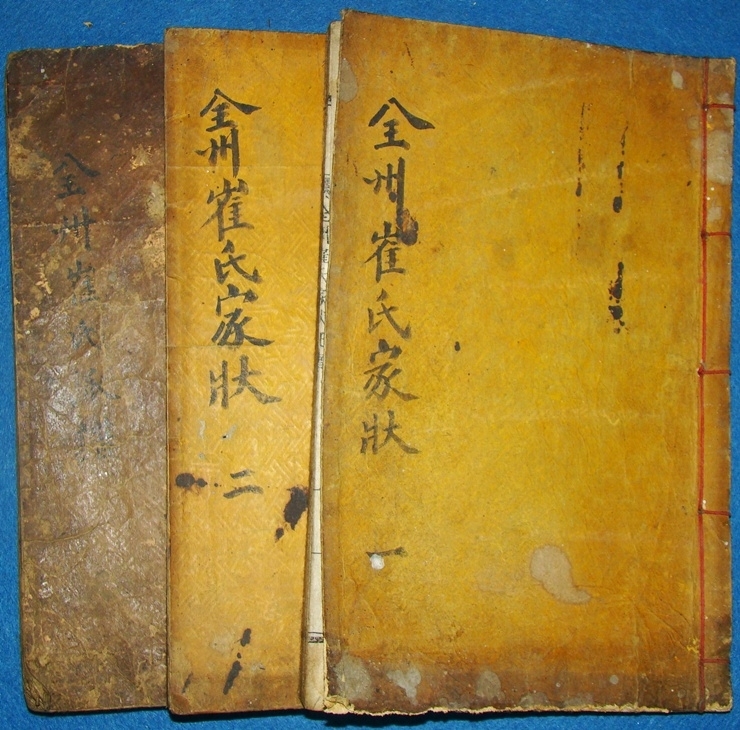 全州崔氏家狀
一
全州崔氏家狀
二
全州崔氏族譜